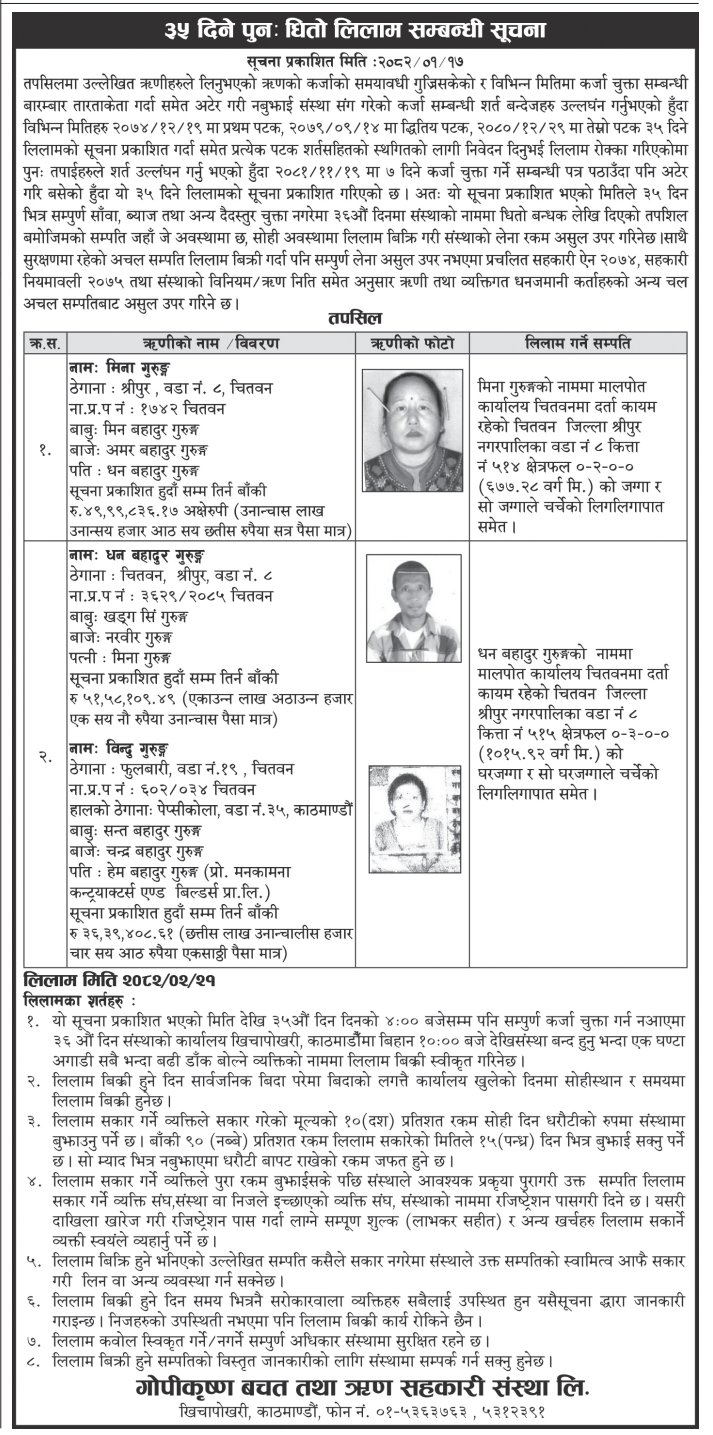 ३५ दिने पुनः धितो लिलाम सम्बन्धी सूचना
सूचना प्रकाशित मिति :२०८२/०१/१७
तपसिलमा उल्लेखित ऋणीहरुले लिनुभएको ऋणको कर्जाको समयावधी गुज्रिसकेको र विभिन्न मितिमा कर्जा चुक्ता सम्बन्धी
बारम्बार तारताकेता गर्दा समेत अटेर गरी नबुझाई संस्था संग गरेको कर्जा सम्बन्धी शर्त बन्देजहरु उल्लघंन गर्नुभएको हुँदा
विभिन्न मितिहरु २०७४/१२/१९ मा प्रथम पटक, २०७९/०९/१४ मा द्धितिय पटक, २०८०/१२/२९ मा तेस्रो पटक ३५ दिने
लिलामको सूचना प्रकाशित गर्दा समेत प्रत्येक पटक शर्तसहितको स्थगितको लागी निवेदन दिनुभई लिलाम रोक्का गरिएकोमा
पुनः तपाईहरुले शर्त उल्लंघन गर्नु भएको हुँदा २०८१/११/१९ मा ७ दिने कर्जा चुक्ता गर्ने सम्बन्धी पत्र पठाउँदा पनि अटेर
गरि बसेको हुँदा यो ३५ दिने लिलामको सूचना प्रकाशित गरिएको छ । अतः यो सूचना प्रकाशित भएको मितिले ३५ दिन
भित्र सम्पुर्ण साँवा, ब्याज तथा अन्य दैदस्तुर चुक्ता नगरेमा ३६औं दिनमा संस्थाको नाममा धितो बन्धक लेखि दिएको तपशिल
बमोजिमको सम्पति जहाँ जे अवस्थामा छ, सोही अवस्थामा लिलाम बिक्रि गरी संस्थाको लेना रकम असुल उपर गरिनेछ ।साथै
सुरक्षणमा रहेको अचल सम्पति लिलाम बिक्री गर्दा पनि सम्पुर्ण लेना असुल उपर नभएमा प्रचलित सहकारी ऐन २०७४, सहकारी
नियमावली २०७५ तथा संस्थाको विनियम/ऋण निति समेत अनुसार ऋणी तथा व्यक्तिगत धनजमानी कर्ताहरुको अन्य चल
अचल सम्पतिबाट असुल उपर गरिने छ।
तपसिल
क्र.स. ऋणीको नाम /विवरण ऋणीको फोटो लिलाम गर्ने सम्पति
१.
नामः मिना गुरुङ्ग
ठेगाना : श्रीपुर , वडा नं. ८, चितवन
ना.प्र.प नं : १७४२ चितवन
बाबुः मिन बहादुर गुरुङ्ग
बाजेः अमर बहादुर गुरुङ्ग
पति : धन बहादुर गुरुङ्ग
सूचना प्रकाशित हुदाँ सम्म तिर्न बाँकी
रु.४९,९९,८३६.१७ अक्षेरुपी (उनान्चास लाख
उनान्सय हजार आठ सय छतीस रुपैया सत्र पैसा मात्र)
मिना गुरुङ्गको नाममा मालपोत
कार्यालय चितवनमा दर्ता कायम
रहेको चितवन जिल्ला श्रीपुर
नगरपालिका वडा नं ८ कित्ता
नं ५१४ क्षेत्रफल ०-२-०-०
(६७७.२८ वर्ग मि.) को जग्गा र
सो जग्गाले चर्चेको लिगलिगापात
समेत ।
२.
नामः धन बहादुर गुरुङ्ग
ठेगाना : चितवन, श्रीपुर, वडा नं. ८
ना.प्र.प नं : ३६२९/२०८५ चितवन
बाबुः खड्ग सिं गुरुङ्ग
बाजेः नरवीर गुरुङ्ग
पत्नी : मिना गुरुङ्ग
सूचना प्रकाशित हुदाँ सम्म तिर्न बाँकी
रु ५१,५८,१०९.४९ (एकाउन्न लाख अठाउन्न हजार
एक सय नौ रुपैया उनान्चास पैसा मात्र)
नामः विन्दु गुरुङ्ग
ठेगाना : फुलबारी, वडा नं.१९ , चितवन
ना.प्र.प नं : ६०२/०३४ चितवन
हालको ठेगानाः पेप्सीकोला, वडा नं.३५, काठमाण्डौं
बाबुः सन्त बहादुर गुरुङ्ग
बाजेः चन्द्र बहादुर गुरुङ्ग
पति : हेम बहादुर गुरुङ्ग (प्रो. मनकामना
कन्ट्रयाक्टर्स एण्ड बिल्डर्स प्रा.लि.)
सूचना प्रकाशित हुदाँ सम्म तिर्न बाँकी
रु ३६,३९,४०८.६१ (छत्तीस लाख उनान्चालीस हजार
चार सय आठ रुपैया एकसाठ्ठी पैसा मात्र)
धन बहादुर गुरुङ्गको नाममा
मालपोत कार्यालय चितवनमा दर्ता
कायम रहेको चितवन जिल्ला
श्रीपुर नगरपालिका वडा नं ८
कित्ता नं ५१५ क्षेत्रफल ०-३-०-०
(१०१५.९२ वर्ग मि.) को
घरजग्गा र सो घरजग्गाले चर्चेको
लिगलिगापात समेत ।
लिलाम मिति २०८२/०२/२१
लिलामका शर्तहरु :
१. यो सूचना प्रकाशित भएको मिति देखि ३५औं दिन दिनको ४:०० बजेसम्म पनि सम्पुर्ण कर्जा चुक्ता गर्न नआएमा
३६ औं दिन संस्थाको कार्यालय खिचापोखरी, काठमाडौँमा बिहान १०:०० बजे देखिसंस्था बन्द हुनु भन्दा एक घण्टा
अगाडी सबै भन्दा बढी डाँक बोल्ने व्यक्तिको नाममा लिलाम बिक्री स्वीकृत गरिनेछ ।
२. लिलाम बिक्री हुने दिन सार्वजनिक बिदा परेमा बिदाको लगत्तै कार्यालय खुलेको दिनमा सोहीस्थान र समयमा
लिलाम बिक्री हुनेछ ।
३. लिलाम सकार गर्ने व्यक्तिले सकार गरेको मूल्यको १०(दश) प्रतिशत रकम सोही दिन धरौटीको रुपमा संस्थामा
बुझाउनु पर्ने छ । बाँकी ९० (नब्बे) प्रतिशत रकम लिलाम सकारेको मितिले १५(पन्ध्र) दिन भित्र बुझाई सक्नु पर्ने
छ । सो म्याद भित्र नबुझाएमा धरौटी बापट राखेको रकम जफत हुने छ ।
४. लिलाम सकार गर्ने व्यक्तिले पुरा रकम बुझाईसके पछि संस्थाले आवश्यक प्रकृया पुरागरी उक्त सम्पति लिलाम
सकार गर्ने व्यक्ति संघ,संस्था वा निजले इच्छाएको व्यक्ति संघ, संस्थाको नाममा रजिष्ट्रेशन पासगरी दिने छ । यसरी
दाखिला खारेज गरी रजिष्ट्रेशन पास गर्दा लाग्ने सम्पूण शुल्क (लाभकर सहीत) र अन्य खर्चहरु लिलाम सकार्ने
व्यक्ती स्वयंले व्यहार्नु पर्ने छ ।
५. लिलाम बिक्रि हुने भनिएको उल्लेखित सम्पति कसैले सकार नगरेमा संस्थाले उक्त सम्पतिको स्वामित्व आफै सकार
गरी लिन वा अन्य व्यवस्था गर्न सक्नेछ ।
६. लिलाम बिक्री हुने दिन समय भित्रनै सरोकारवाला व्यक्तिहरु सबैलाई उपस्थित हुन यसैसूचना द्धारा जानकारी
गराइन्छ । निजहरुको उपस्थिती नभएमा पनि लिलाम बिक्री कार्य रोकिने छैन ।
७. लिलाम कवोल स्विकृत गर्ने/नगर्ने सम्पुर्ण अधिकार संस्थामा सुरक्षित रहने छ ।
८. लिलाम बिक्री हुने सम्पतिको विस्तृत जानकारीको लागि संस्थामा सम्पर्क गर्न सक्नु हुनेछ ।
गोपीकृष्ण बचत तथा ऋण सहकारी संस्था लि.
खिचापोखरी, काठमाण्डौं, फोन नं. ०१-५३६३७६३ , ५३१२३९१